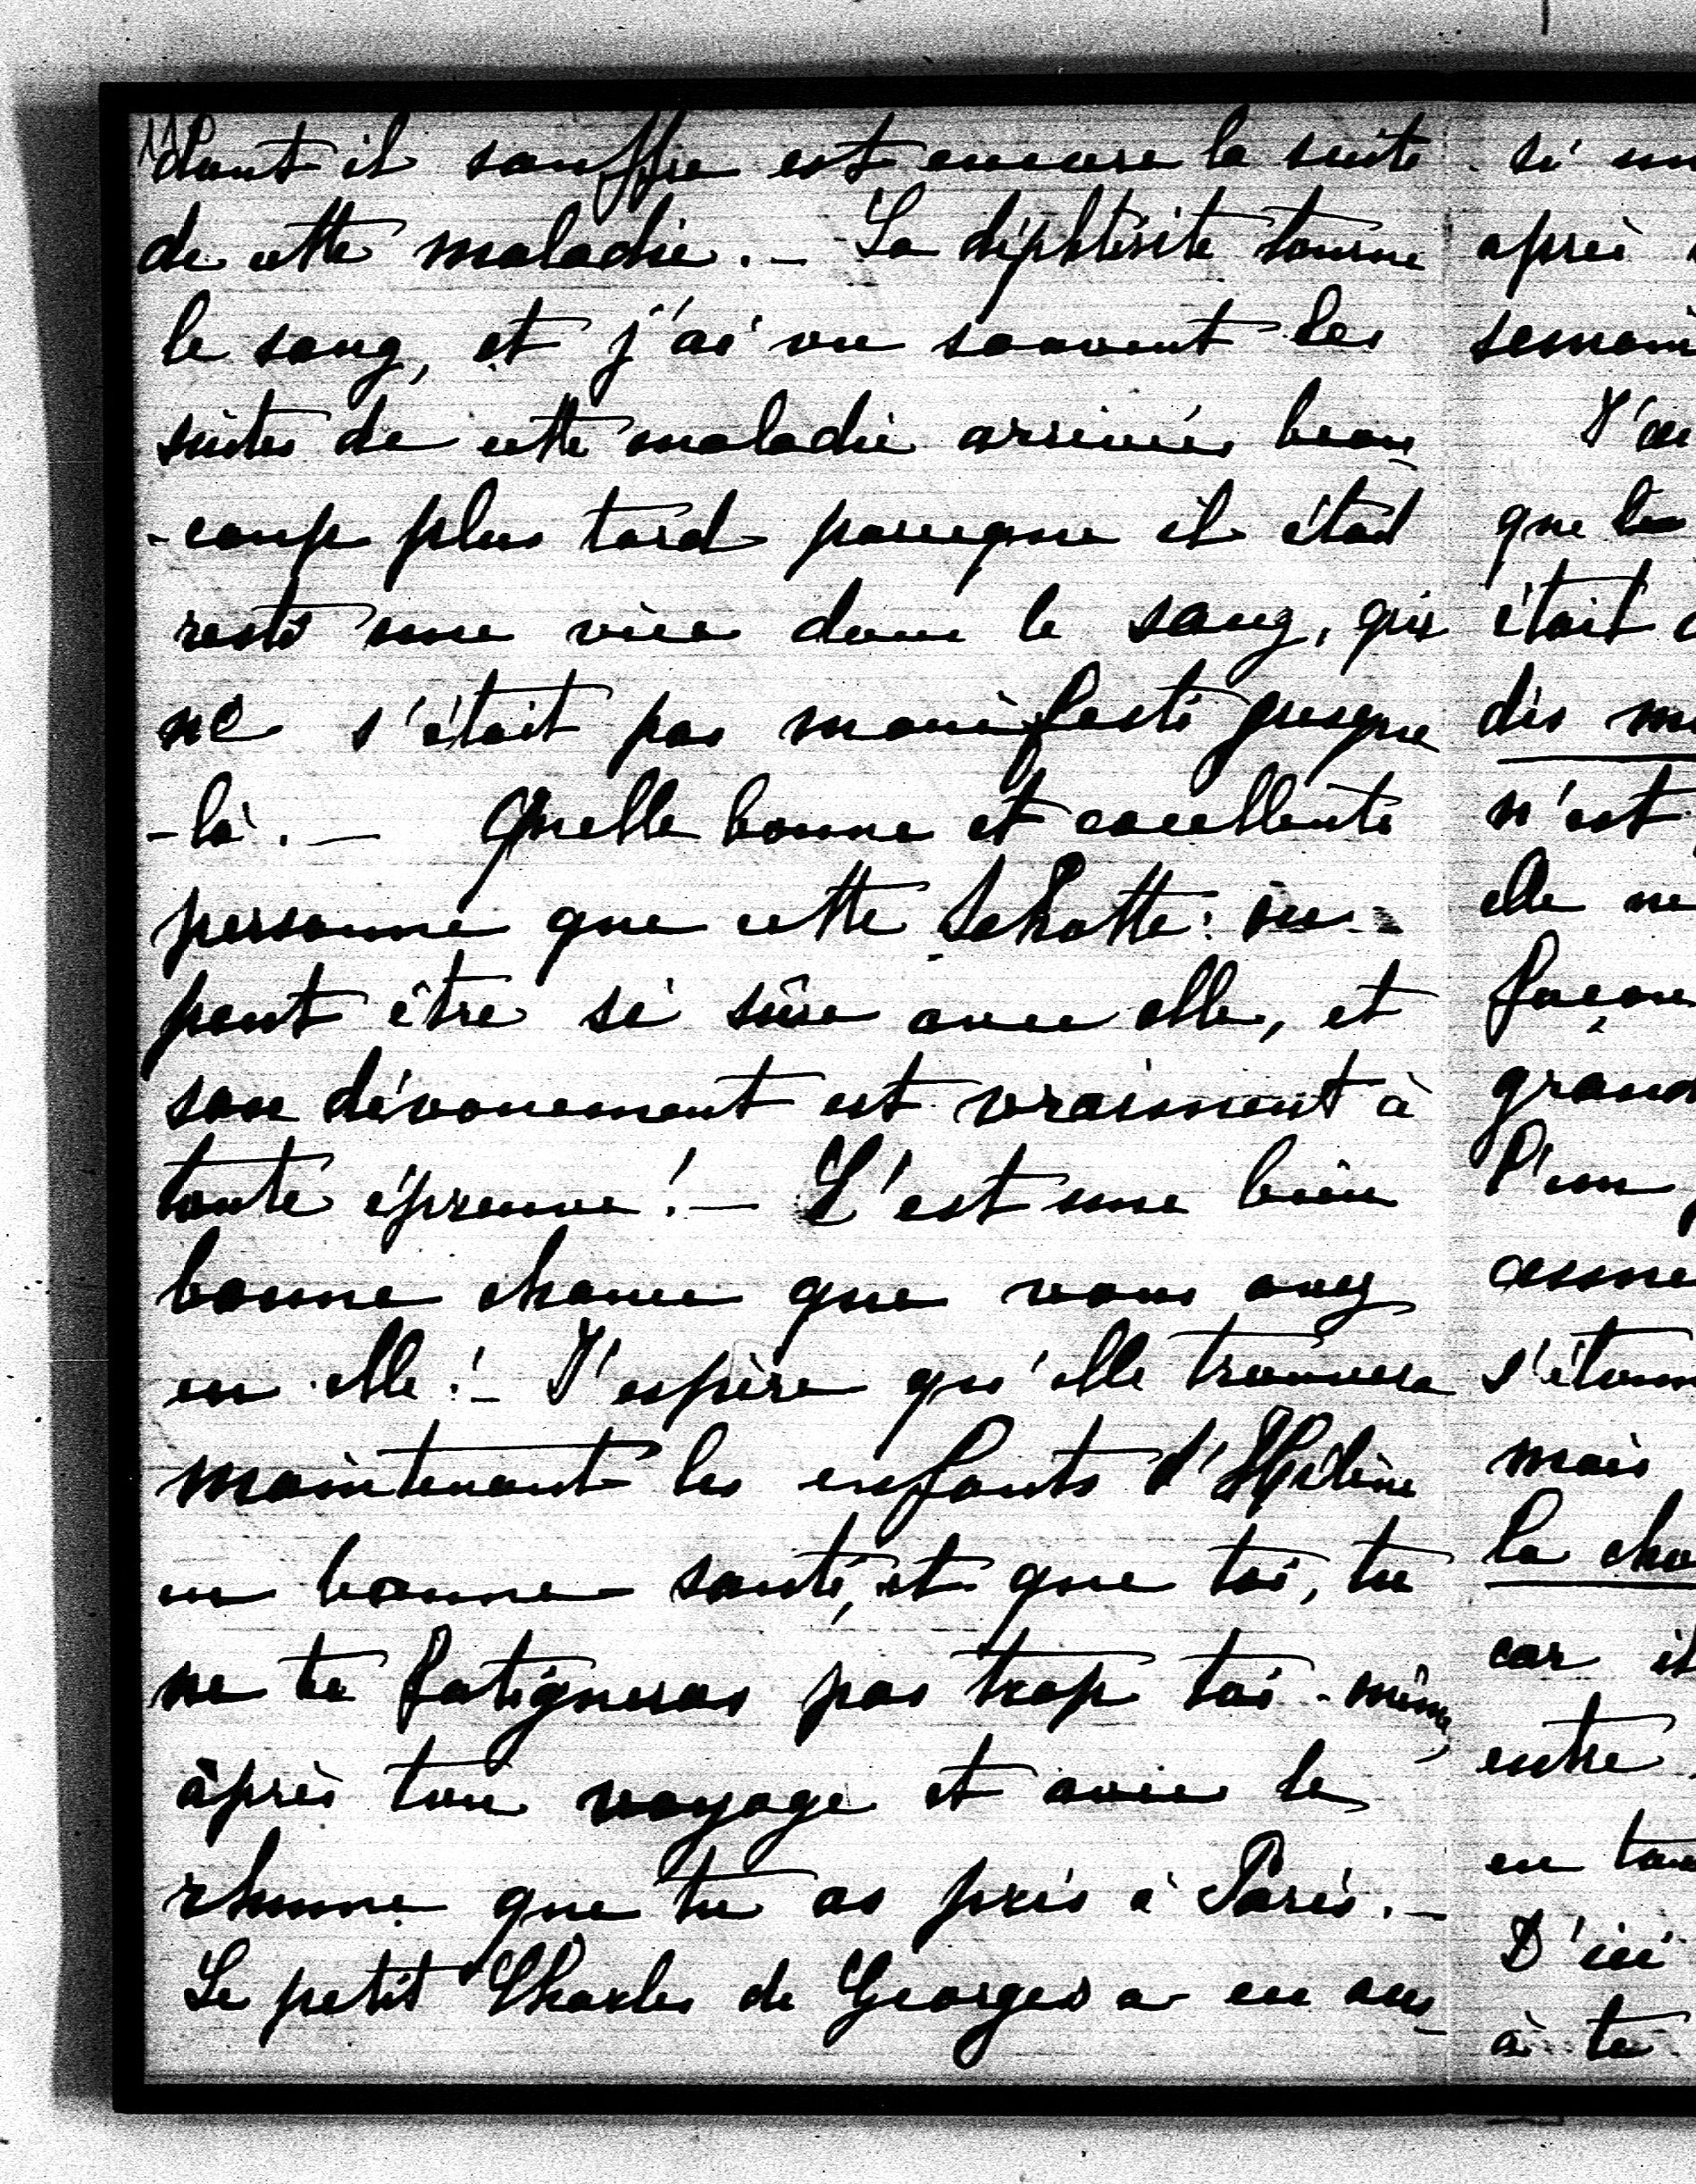 dont il souffre est encore la suite
de cette maladie. _ La diphtérite tourne
le sang, et j'ai vu souvent les
suites de cette maladie arrivées beau
-coup plus tard parceque il était
resté une vice dans le sang, qui
ne s'était pas manifesté jusque
-là. _ Quelle bonne et excellente
personne que cette
peut être si sûre avec elle, et
son dévouement est vraiment à
toute épreuve! _ C'est une bien
bonne chance que vous avez
en elle! _ J'espère qu'elle trouvera
maintenant les enfants d'Hélène
en bonne santé, et que toi, tu
ne te fatigueras pas trop toi-même,
après ton voyage et avec le
rhume que tu as pris à Paris. _
Le petit Charles de Georges a eu aus-
si un
après
semain
J'ai
que les
était
dis
n'est
elle ne
façon
grand
l'un
s'étonn
mais
la cho
car il
entre
en
D'ici
à te